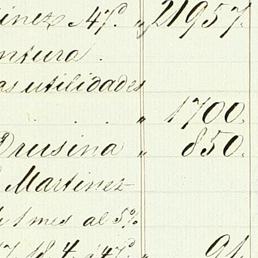 inez 47º " 21957.
ntura.
as utilidades
. . . " 1700.
Drusina " 850.
Martinez
1 mes al 5%
91.